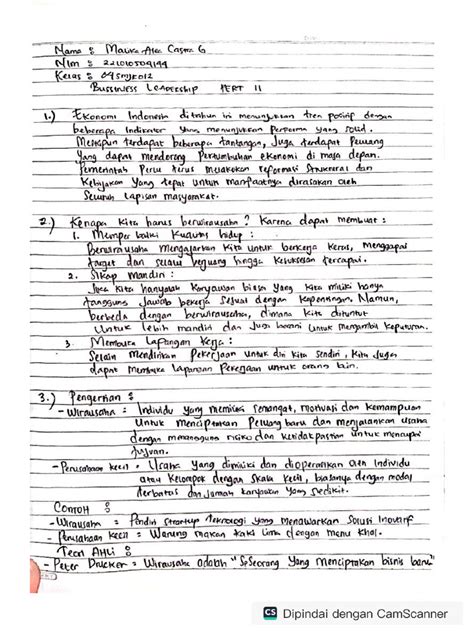 Nama :
Nim : 221010504194
Kelas :
Bussiness Leadership PERT 11
1.) Ekonomi Indonesia ditahun ini menunjukkan tren positif dengan
beberapa Indikator yang menunjukkan Performa yang solid.
Meskipun terdapat beberapa tantangan, Juga terdapat Peluang
Yang dapat mendorong Pertumbuhan ekonomi di masa depan.
Pemerintah Perlu terus melakukan reformasi Struktural dan
Kebijakan Yang tepat untuk manfaatnya dirasakan oleh
Seluruh lapisan masyarakat.
2.) Kenapa Kita harus berwirausaha ? Karena dapat membuat :
1. Memperbaiki Kualitas hidup :
Berwirausaha Mengajarkan Kita untuk bekerja keras, Menggapai
target dan selalu berjuang hingga Kesuksesan tercapai.
2. Sikap Mandiri :
Jika Kita hanyalah Karyawan biasa Yang Kita miliki hanya
tanggung Jawab bekerja Sesuai dengan Kepentingan. Namun,
berbeda dengan berwirausaha, dimana Kita dituntut
Untuk lebih mandiri dan Juga berani Untuk mengambil Keputusan.
3. Membuka Lapangan Kerja :
Selain Mendirikan Pekerjaan untuk diri Kita Sendiri, Kita Juga
dapat Membuka lapangan Pekerjaan untuk orang lain.
3.) Pengertian :
- Wirausaha : Individu Yang memiliki Semangat, motivasi dan Kemampuan
Untuk Menciptakan Peluang baru dan menjalankan usaha
dengan menanggung risiko dan Ketidakpastian untuk mencapai
tujuan.
- Perusahaan Kecil : Usaha Yang dimiliki dan dioperasikan oleh Individu
atau Kelompok dengan Skala Kecil, biasanya dengan modal
terbatas dan Jumlah Karyawan Yang Sedikit.
CONTOH :
- Wirausaha = Pendiri Startup teknologi Yang Menawarkan Solusi Inovatif
- Perusahaan Kecil = Warung makan Kaki Lima dengan menu Khas.
Teori AHLi :
- Peter Drucker = Wirausaha adalah "Seseorang Yang Menciptakan bisnis baru"
CS Dipindai dengan CamScanner